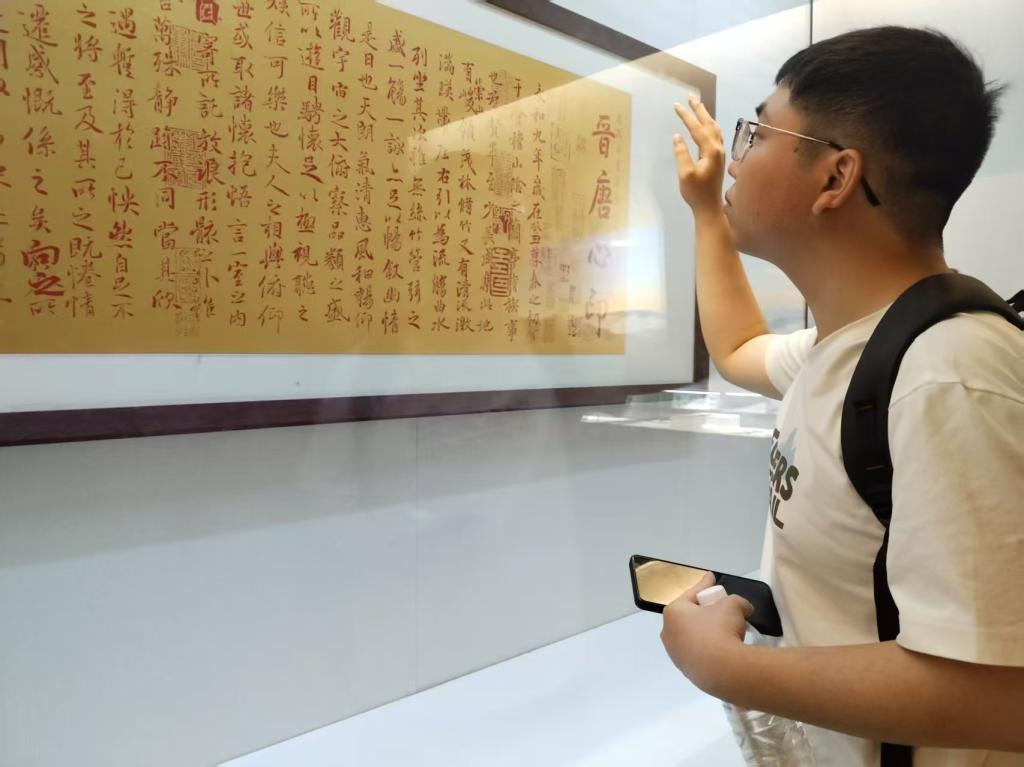 晉唐心印
永和九年歲在癸丑暮春之初
于會稽山陰之蘭亭脩稧事
也羣賢畢至少長咸集此地
有崇山峻領茂林脩竹又有清流激
湍暎帶左右引以為流觴曲水
列坐其次雖無絲竹管弦之
盛一觴一詠亦足以暢敘幽情
是日也天朗氣清惠風和暢仰
觀宇宙之大俯察品類之盛
所以遊目騁懷足以極視聽之
娛信可樂也夫人之相與俯仰
世或取諸懷抱悟言一室之內
因寄所託放浪形骸之外雖
舍萬殊靜躁不同當其欣
遇蹔得於己怏然自足不
之將至及其所之既惓情
遷感慨係之矣向之所